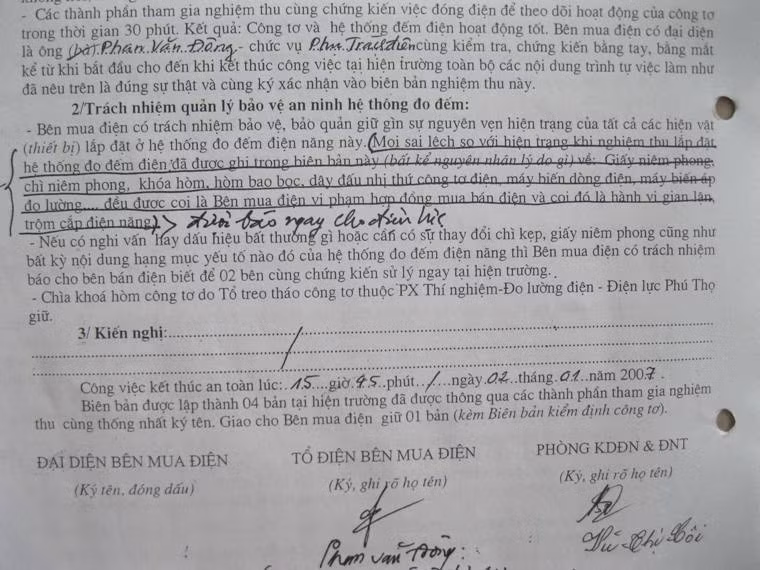 - Các thành phần tham gia nghiệm thu cùng chứng kiến việc đóng điện để theo dõi hoạt động của công tơ
trong thời gian 30 phút. Kết quả: Công tơ và hệ thống đếm điện hoạt động tốt. Bên mua điện có đại diện
là ông (bà). Phan. Văn. Đông. - chức vụ P.hụ Trách điện cùng kiểm tra, chứng kiến bằng tay, bằng mắt
kể từ khi bắt đầu cho đến khi kết thúc công việc tại hiện trường toàn bộ các nội dung trình tự việc làm như
đã nêu trên là đúng sự thật và cùng ký xác nhận vào biên bản nghiệm thu này.
2/Trách nhiệm quản lý bảo vệ an ninh hệ thống đo đếm:
- Bên mua điện có trách nhiệm bảo vệ, bảo quản giữ gìn sự nguyên vẹn hiện trạng của tất cả các hiện vật
(thiết bị) lắp đặt ở hệ thống đo đếm điện năng này. (Mọi sai lệch so với hiện trạng khi nghiệm thu lắp đặt
hệ thống đo đếm điện đã được ghi trong biên bản này (bất kể nguyên nhân lý do gì) về: Giấy niêm phong,
chì niêm phong, khóa hòm, hòm bao bọc, dây đấu nhị thứ công tơ điện, máy biến dòng điện, máy biến áp
đo lường.... đều được coi là Bên mua điện vi phạm hợp đồng mua bán điện và coi đó là hành vi gian lận,
trộm cắp điện năng.) báo ngay cho điện lực
- Nếu có nghi vấn hay dấu hiệu bất thường gì hoặc cần có sự thay đổi chì kẹp, giấy niêm phong cũng như
bất kỳ nội dung hạng mục yếu tố nào đó của hệ thống đo đếm điện năng thì Bên mua điện có trách nhiệm
báo cho bên bán điện biết để 02 bên cùng chứng kiến sử lý ngay tại hiện trường.
- Chìa khoá hòm công tơ do Tổ treo tháo công tơ thuộc PX Thí nghiệm-Đo lường điện - Điện lực Phú Thọ
giữ.
3/ Kiến nghị:
Công việc kết thúc an toàn lúc: 15 giờ 45 phút / ngày 02 tháng 01 năm 2007.
Biên bản được lập thành 04 bản tại hiện trường đã được thông qua các thành phần tham gia nghiệm
thu cùng thống nhất ký tên. Giao cho Bên mua điện giữ 01 bản (kèm Biên bản kiểm định công tơ).
ĐẠI DIỆN BÊN MUA ĐIỆN TỔ ĐIỆN BÊN MUA ĐIỆN PHÒNG KDĐN & ĐNT
(Ký tên, đóng dấu) (Ký, ghi rõ họ tên) (Ký, ghi rõ họ tên)
Phan Văn Đông